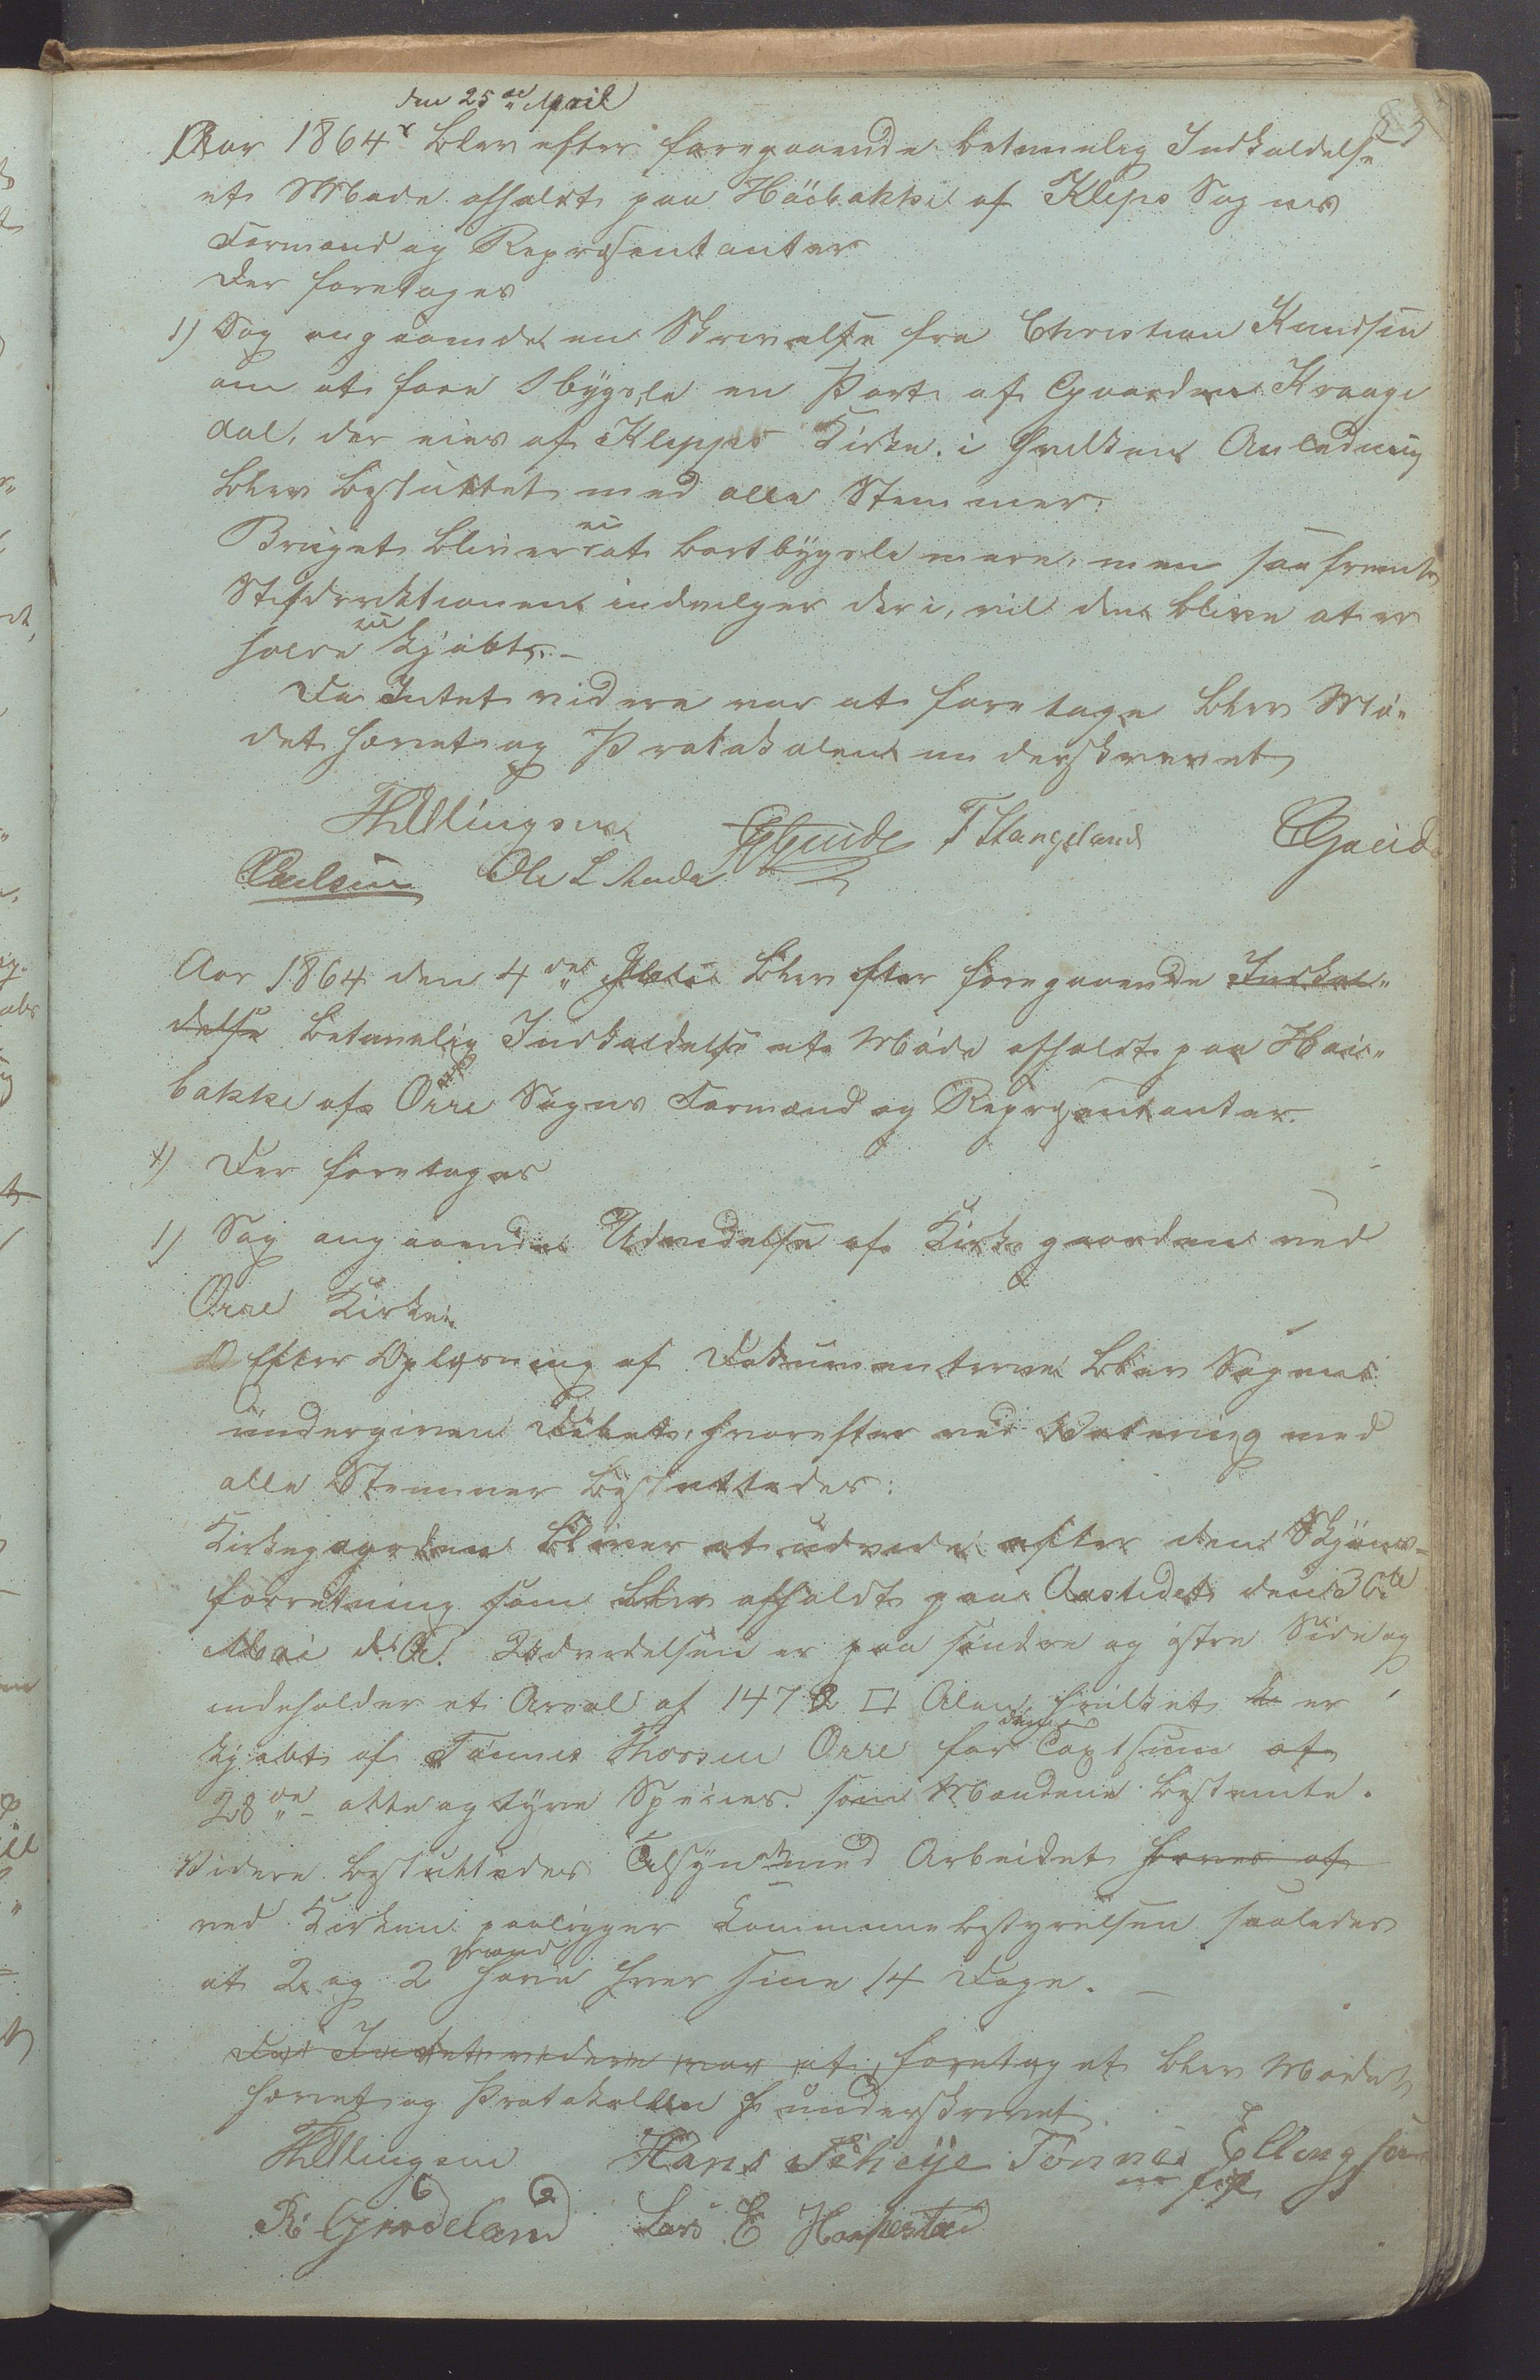 den 25de April
Aar 1864 blev efter foregaaende betimelig Indkaldelse
et Møde afholdt paa Høibakke af Kleps Sogns
Formænd og Repræsentanter
Der foretoges
1) Sag angaaende en Skrivelse fra Christian Knudsen
om at faae bygsle en Part af Gaarden Kraage
dal, der eies af Klepps Kirke. i hvilken Anledning
blev besluttet med alle Stemmer.
Bruget bliver ei at bortbygsle mere, men saafremt
Stiftdirektionen indvilger deri, vil den blive at er
holde kjøbt. –
Da Intet videre var at foretage blev Mø„
det hævet og Protokolen underskrevet
TH Ellingsen T Stangeland
Ole L Aada
Aar 1864 den 4de Juli blev efter foregaaende Indkal„
delse betimelig Indkaldelse et Møde afholdt paa Høi„
bakke af Orre Sogns Formænd og Repræsentanter.
Der foretoges
1) Sag angaaende Udvidelse af Kirkegaarden ved
Orre Kirke.
Efter Oplæsning af Dokumenterne blev Sagens
undergiven Debat, hvorefter ved Votering med
alle Stemmer besluttedes:
Kirkegaarden bliver at udvide efter den Skjøns-
forretning som blev afholdt paa Aastedet den 30te
Mai d. A. Udvidelsen er paa søndre og østre Side og
indeholder et Areal af 1472 □ Alen, hvilket er
kjøbt af Tønnes Thorsen Orre for den Capt sum af
28de – otte og tyve Species. som Mændene bestemte.
Videre besluttedes Tilsyn med Arbeidet haves af
ved Kirken paaligger Kommunebestyrelsen saaledes
at 2 og 2 Mand have hver sine 14 Dage. –
Da Intet videre var at foretaget blev Mødet
hævet og Protokollen underskrevet.
TH Ellingsen Hans Scheije Tønnes Ellingsen
R. Gjrodeland Lars E Haakestad